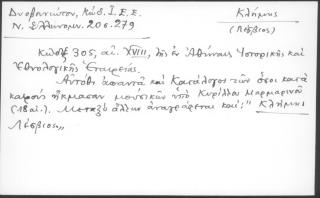 Δυοβουνιώτου, Κώδ. Ι.Ε.Ε.
Ν. Ἑλληνομν. 20 σ. 279
Κλήμης
(Λέσβιος)
Κώδηξ 305, αἰ. XVIII, τῆς ἐν Ἀθήναις Ἱστορικῆς καὶ
Ἐθνολογικῆς Ἑταιρείας.
Αὐτόθι ἀπαντᾶ καὶ Κατάλογος τῶν ὅσοι κατὰ
καιροὺς ἤκμασαν μουσικῶν ὑπὸ Κυρίλλου Μαρμαρινοῦ
(18 αἰ.). Μεταξὺ ἄλλων ἀναγράφεται καί: "Κλήμης
Λέσβιος"